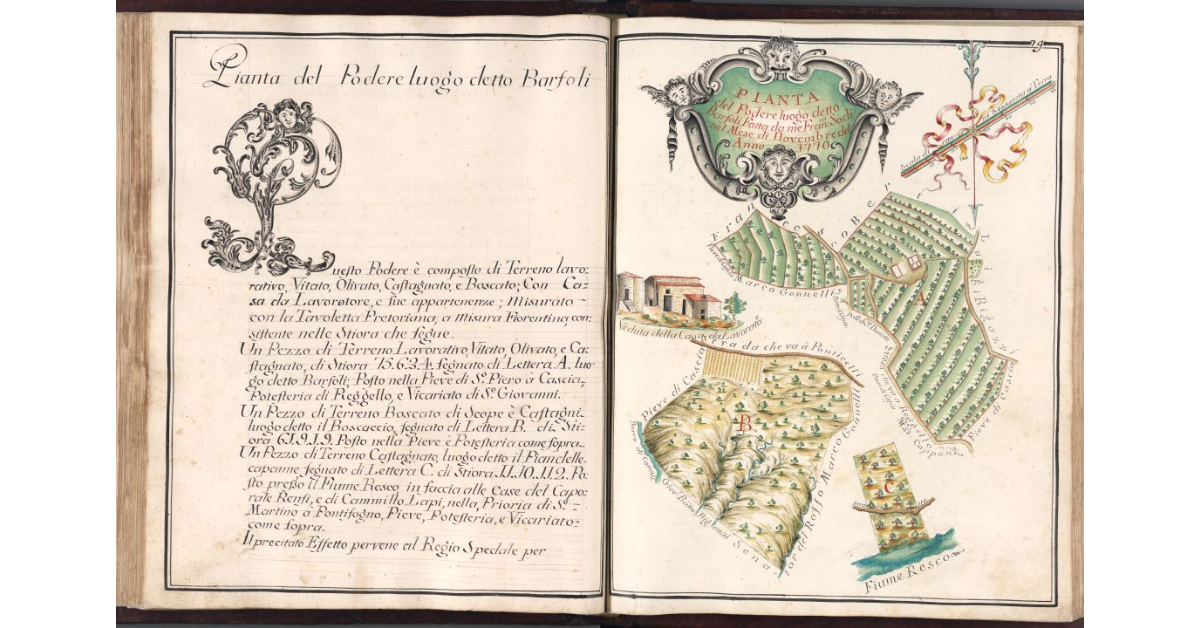 Pianta del Podere luogo detto Barfoli
Questo Podere è composto di Terreno lavo-
rativo, Vitato, Olivato, Castagnato, e Boscato; Con Ca-
sa da Lavoratore, e sue appartenenze; Misurato
con la Tavoletta Pretoriana, a misura Fiorentina, con-
sistente nelle Stiora che segue.
Un Pezzo di Terreno Lavorativo, Vitato, Olivato, e Ca-
stagnato, di Stiora 15.6.3.4. segnato di Lettera A. luo-
go detto Barfoli; Posto nella Pieve di S. Piero à Cascia,
Potesteria di Reggello, e Vicariato di S. Giovanni.
Un Pezzo di Terreno Boscato di Scope è Castagni,
luogo detto il Boscaccio, segnato di Lettera B. di Sti-
ora 61.9.1.9. Posto nella Pieve è Potesteria come sopra.
Un Pezzo di Terreno Castagnato, luogo detto il Pian delle
capanne segnato di Lettera C. di Stiora 11.10.11.2. Po-
sto presso il Fiume Resco in faccia alle Case del Capo-
rale Rensi, e di Cammillo Lapi, nella Prioria di S.
Martino à Pontifogno, Pieve, Potesteria, e Vicariato
come sopra.
Il precitato Effetto pervene al Regio Spedale per
79
PIANTA
del Podere luogo detto
Barfoli Fatta da me
nel Mese di Novembre del
Anno
Scala di
a Terra
Marco Gonnelli
Luigi Rigazzi
Pieve di Cascia
A
Veduta della Casa da Lavorate
Strada che va à Ponticelli
Pieve di Cascia
B
Marco Gonnelli
Senator del Rosso
C
Fiume Resco